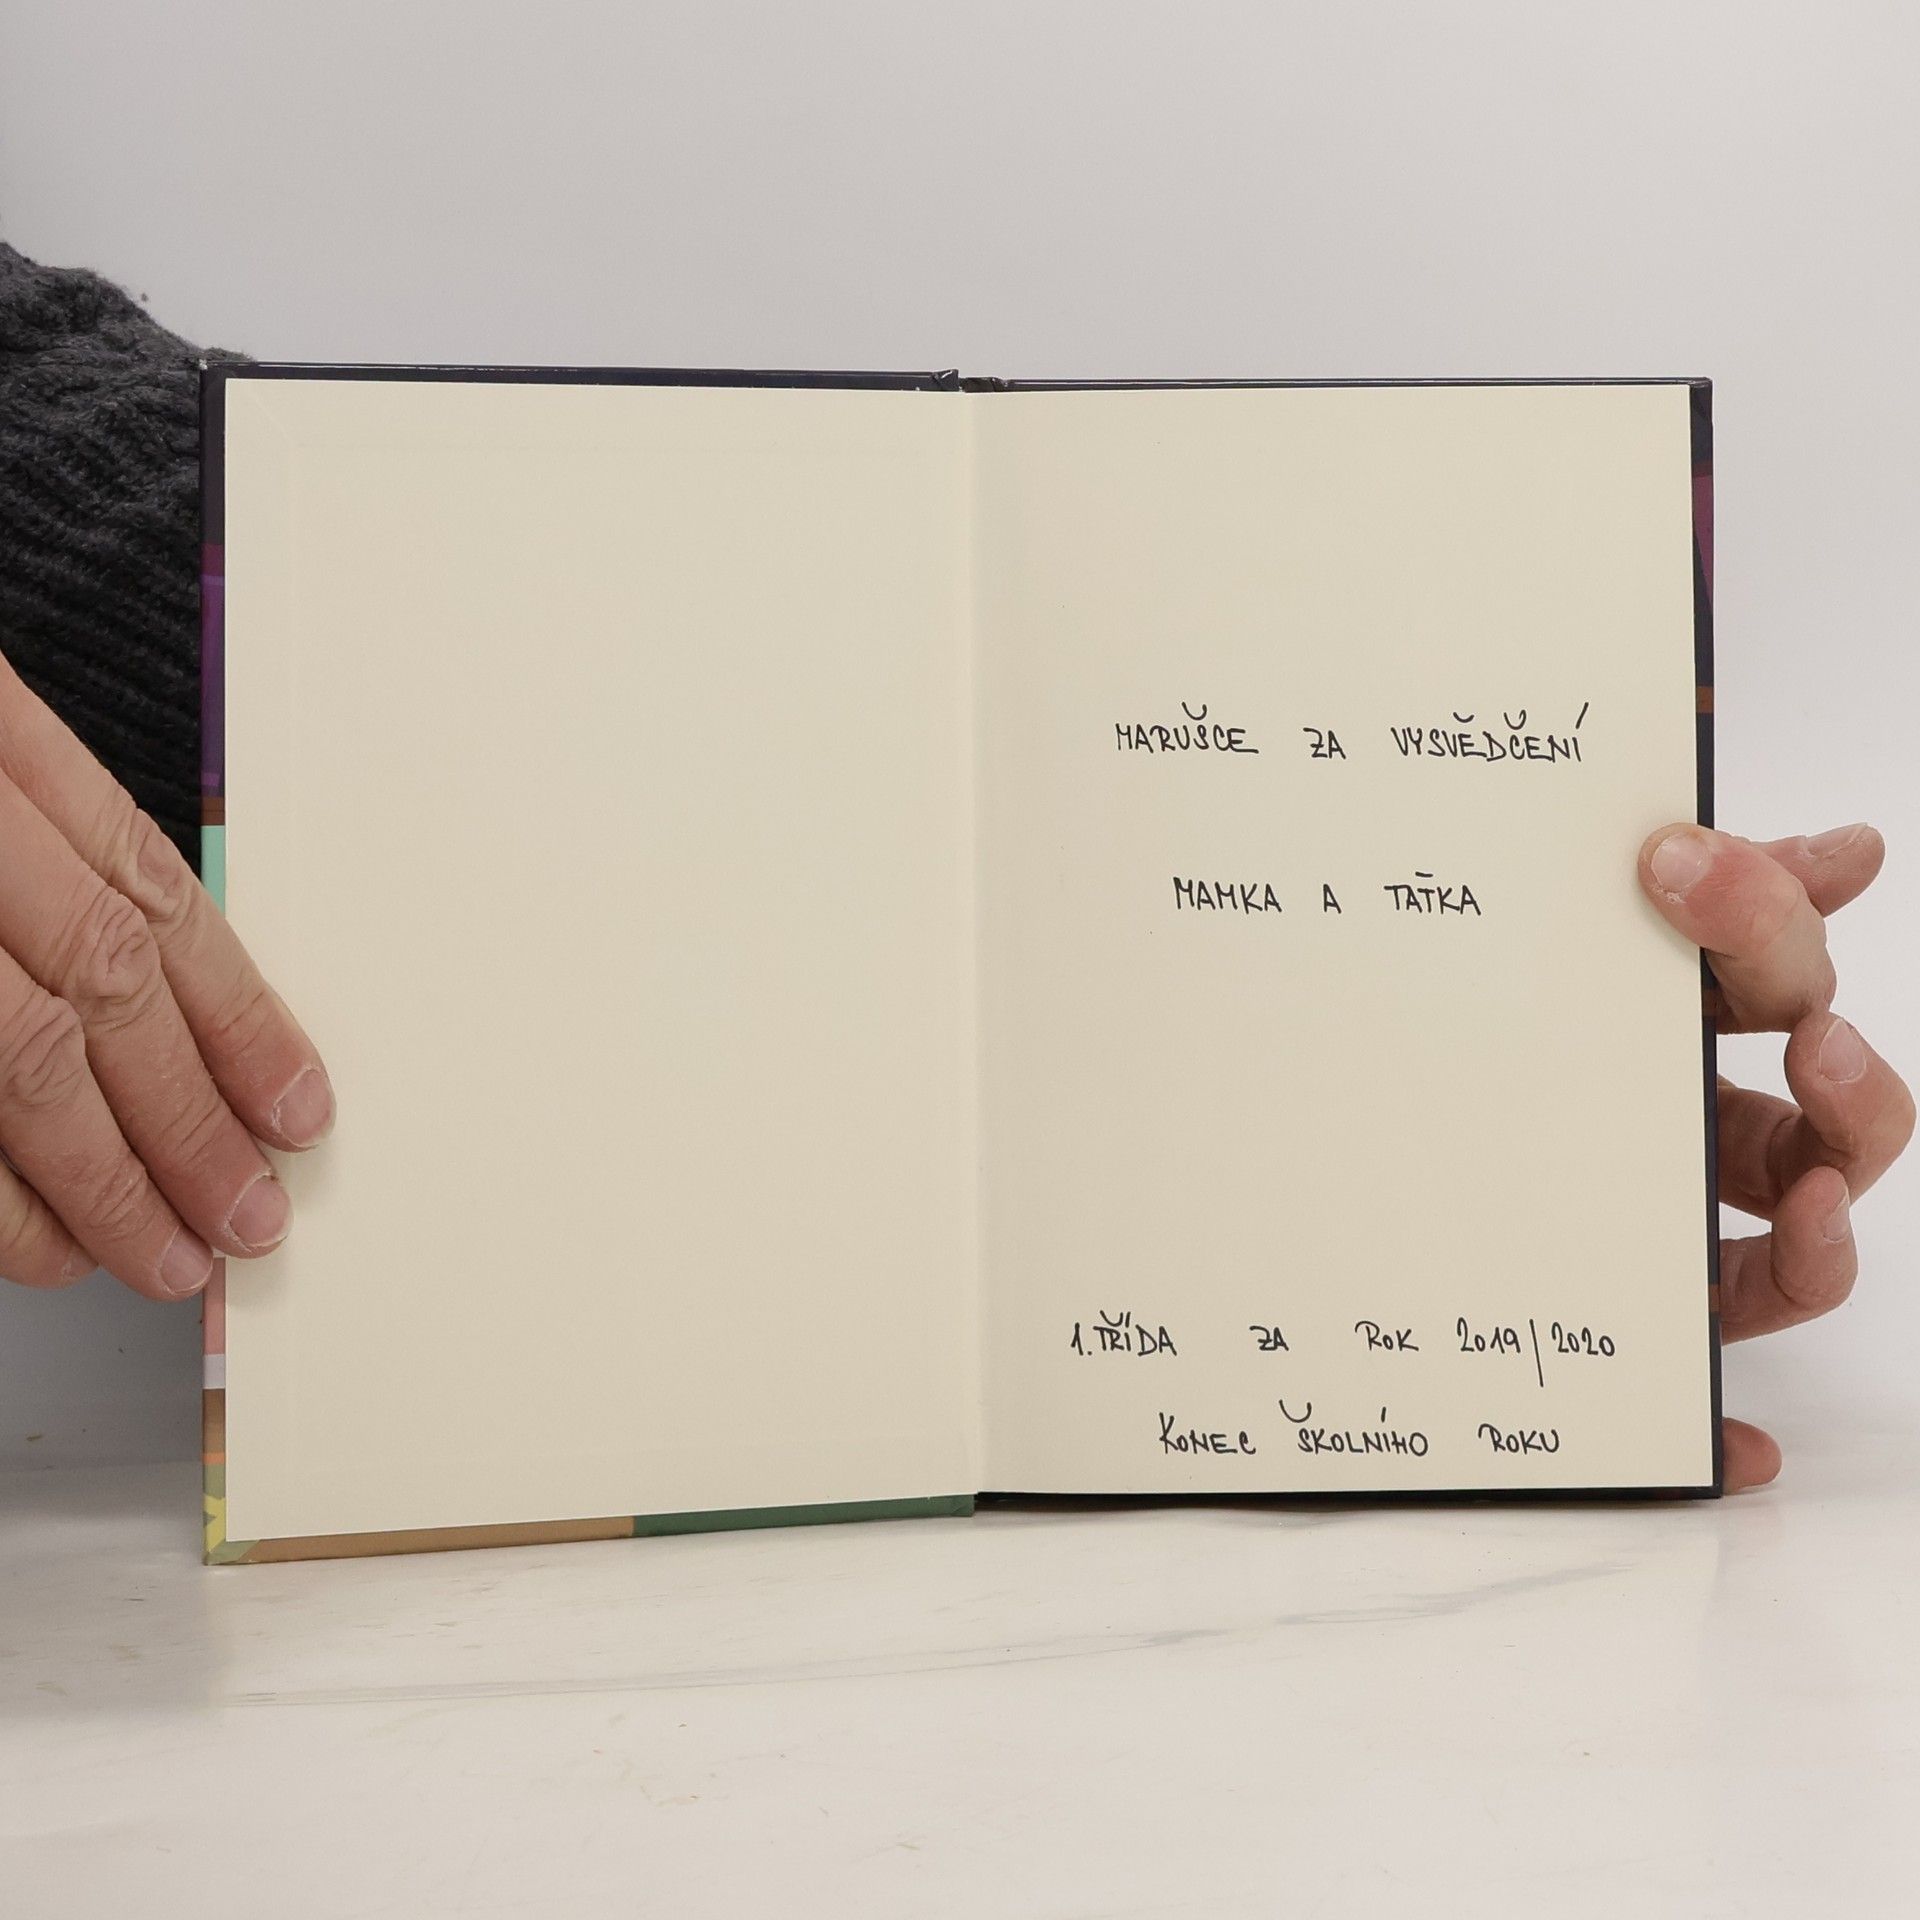 MARUŠCE ZA VYSVĚDČENÍ
MAMKA A TAŤKA
1. TŘÍDA ZA ROK 2019/2020
KONEC ŠKOLNÍHO ROKU